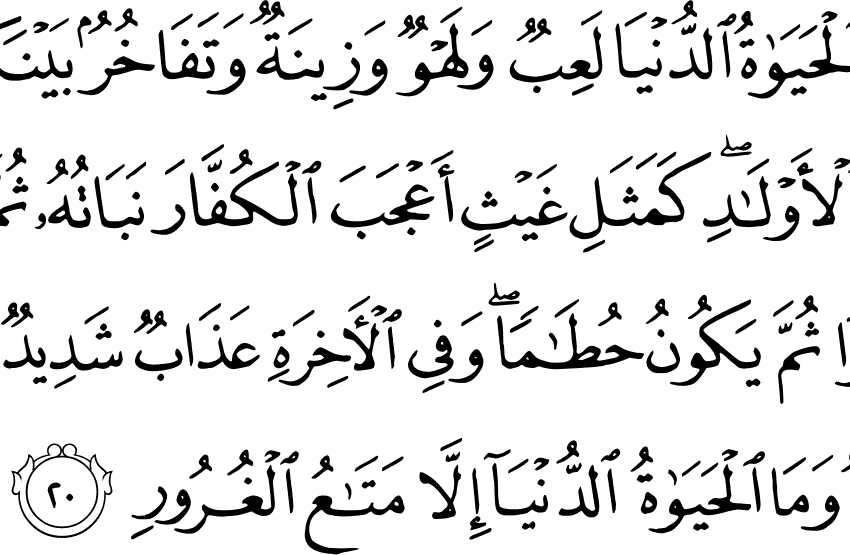 ٱلْحَيَوٰةُ ٱلدُّنْيَا لَعِبٌ وَلَهْوٌ وَزِينَةٌ وَتَفَاخُرٌۢ
ٱلْأَوْلَٰدِ ۖ كَمَثَلِ غَيْثٍ أَعْجَبَ ٱلْكُفَّارَ نَبَاتُهُۥ
ثُمَّ يَكُونُ حُطَٰمًا ۖ وَفِى ٱلْءَاخِرَةِ عَذَابٌ شَدِيدٌ
وَمَا ٱلْحَيَوٰةُ ٱلدُّنْيَآ إِلَّا مَتَٰعُ ٱلْغُرُورِ ٢٠